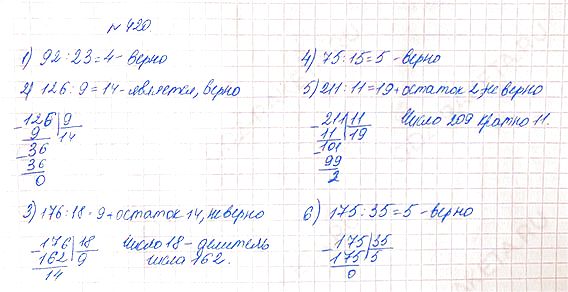 № 420.
1) 92 : 23 = 4 - верно
2) 126 : 9 = 14 - является, верно
126 | 9
9 | 14
36
36
0
3) 176 : 18 = 9 + остаток 14, неверно
176 | 18
162 | 9
14
Число 18 - делитель
числа 162.
4) 75 : 15 = 5 - верно
5) 211 : 11 = 19 + остаток 2, неверно
211 | 11
11 | 19
101
99
2
Число 209 кратно 11.
6) 175 : 35 = 5 - верно
175 | 35
175 | 5
0